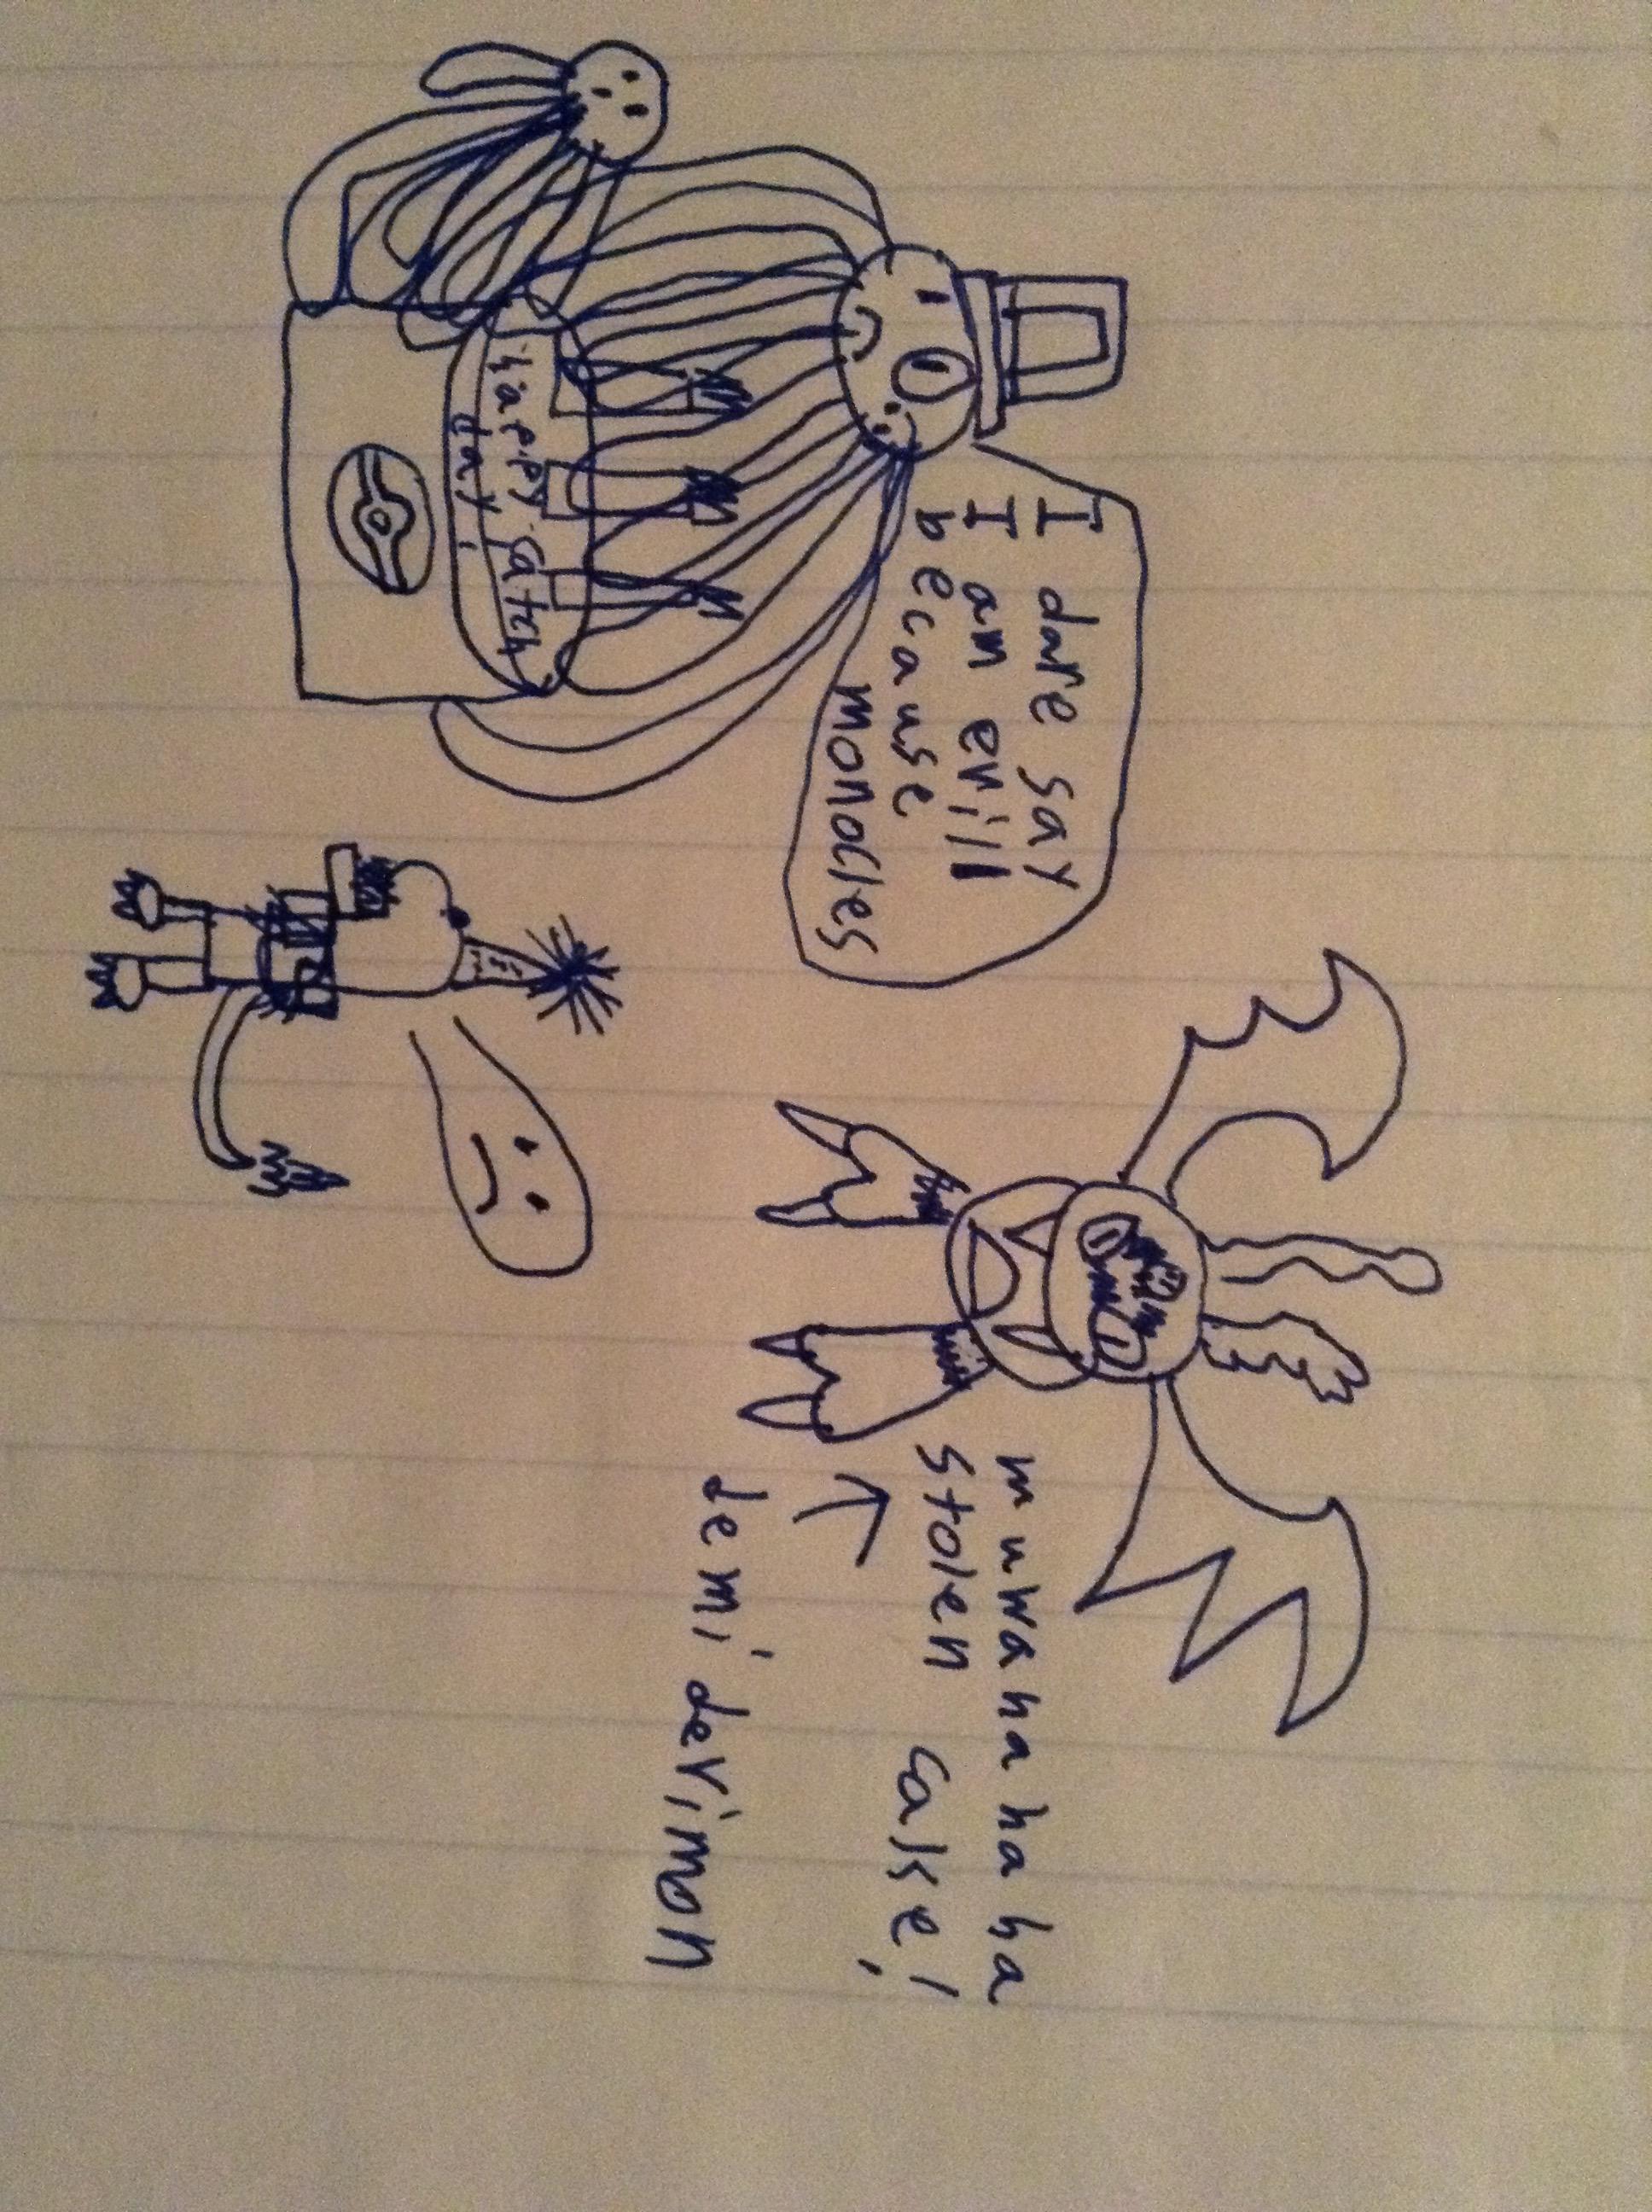 I dare say
I am evill
because
monocles
happy catch
day!
muwahahahaha
stolen calse!
demi devimon